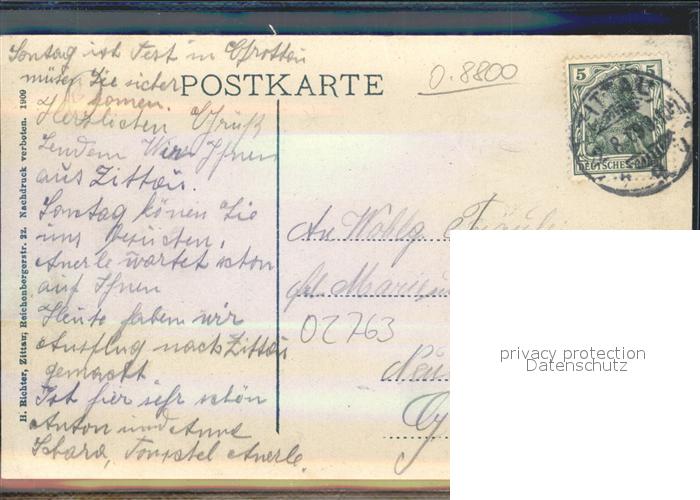 Sontag ist Fest in Grottau
müsen Sie sicher
komen.
POSTKARTE
0.8800
Herzlichen Gruß
Sendem Wir Ihnen
aus Zittau.
Sontag könen Sie
uns besuchen,
Anerle wartet schon
auf Ihnen
Heute haben wir
Ausflug nach Zittau
gemacht
Ist hier sehr schön
Anton und Anna
H. Richter, Zittau, Reichenbergerstr. 22. Nachdruck verboten. 1909
5 5
DEUTSCHES REICH
ZITTAU
An Wohlg. Fräul
02763
Neu
privacy protection
Datenschutz